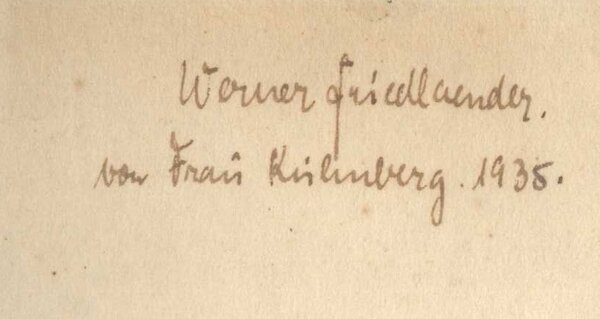 Werner Friedlaender.
von Frau 1935.